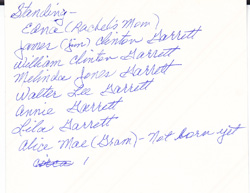 Standing -
Edna (Rachel's Mom)
James (Jim) Clinton Garrett
William Clinton Garrett
Melinda Jones Garrett
Walter Lee Garrett
Annie Garrett
Lila Garrett
Alice Mae (Gram) - Not born yet
circa